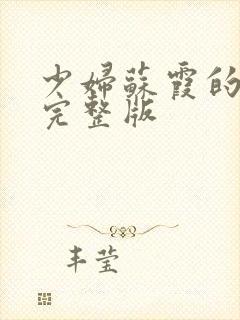 少婦蘇霞的
完整版
丰莹